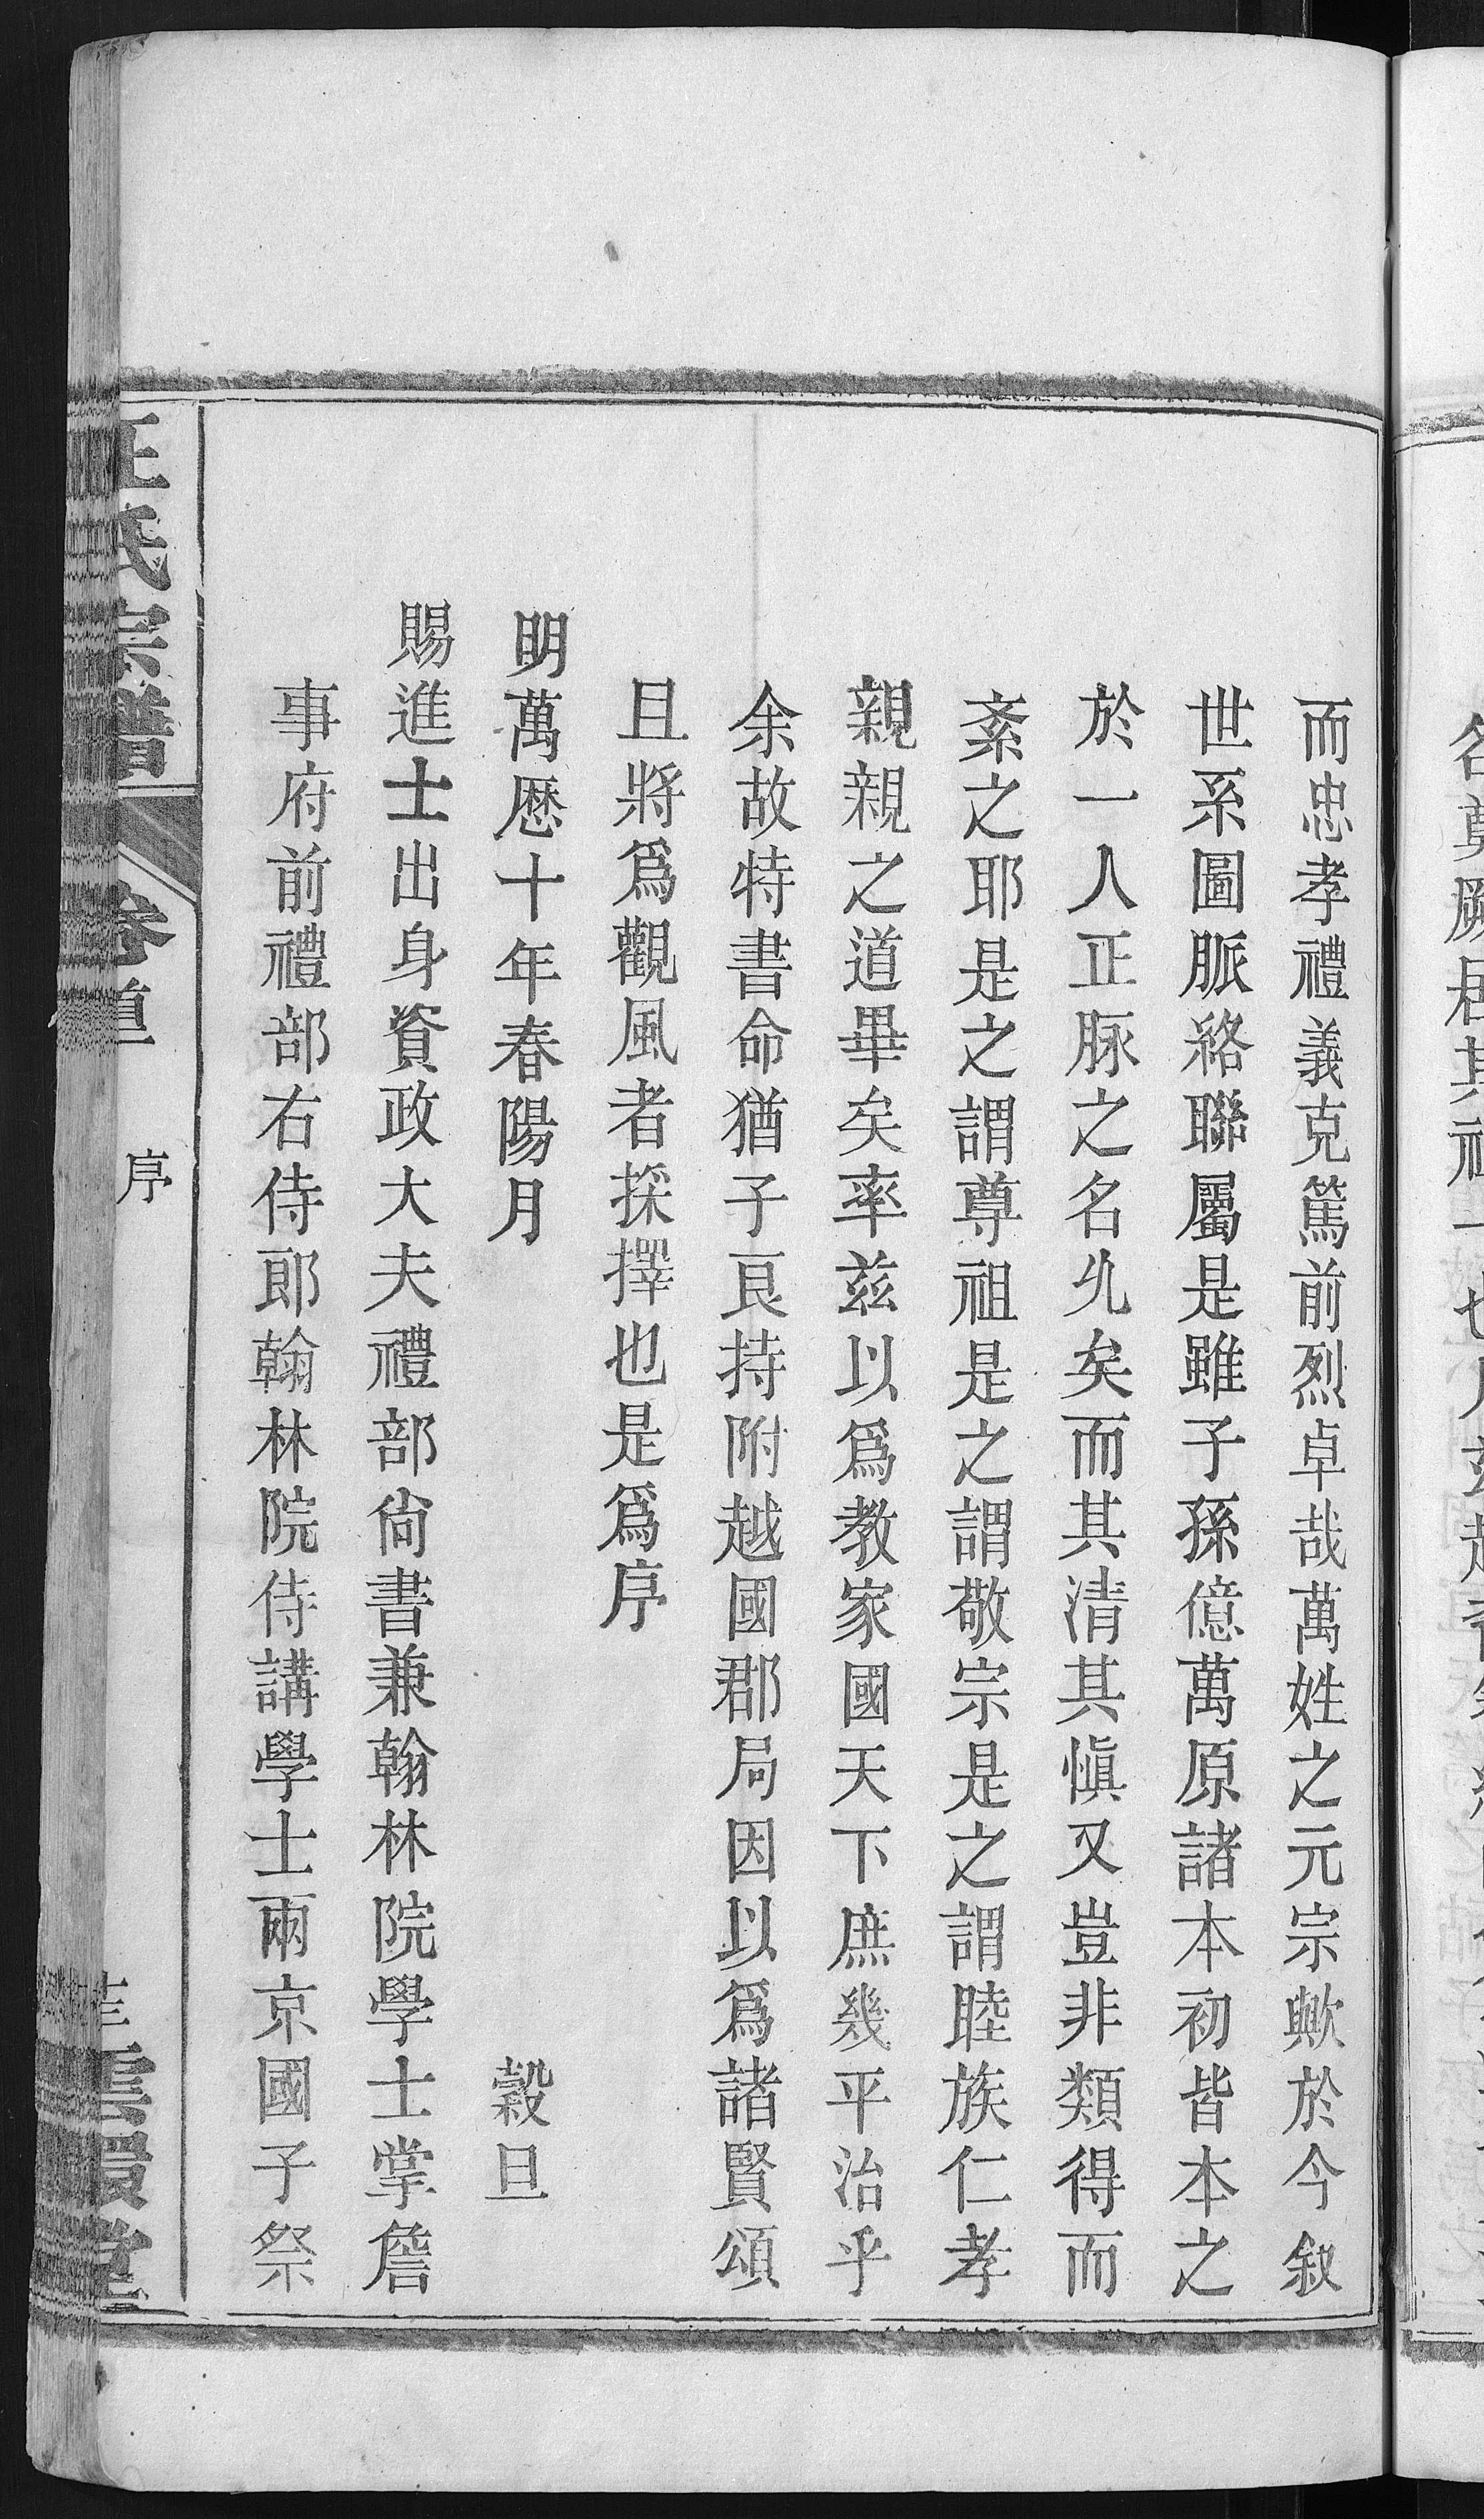 而忠孝禮義克篤前烈卓哉萬姓之元宗歟於今敘
世系圖脈絡聯屬是雖子孫億萬原諸本初皆本之
於一人正脉之名乆矣而其清其愼又豈非類得而
紊之耶是之謂尊祖是之謂敬宗是之謂睦族仁孝
親親之道畢矣率兹以爲教家國天下庶幾平治乎
余故特書命猶子良持附越國郡局因以爲諸賢頌
且將爲觀風者採擇也是爲序
明萬厯十年春陽月 穀旦
賜進士出身資政大夫禮部尙書兼翰林院學士掌詹
事府前禮部右侍郎翰林院侍講學士兩京國子祭
汪氏宗譜 卷首 序 雲環堂